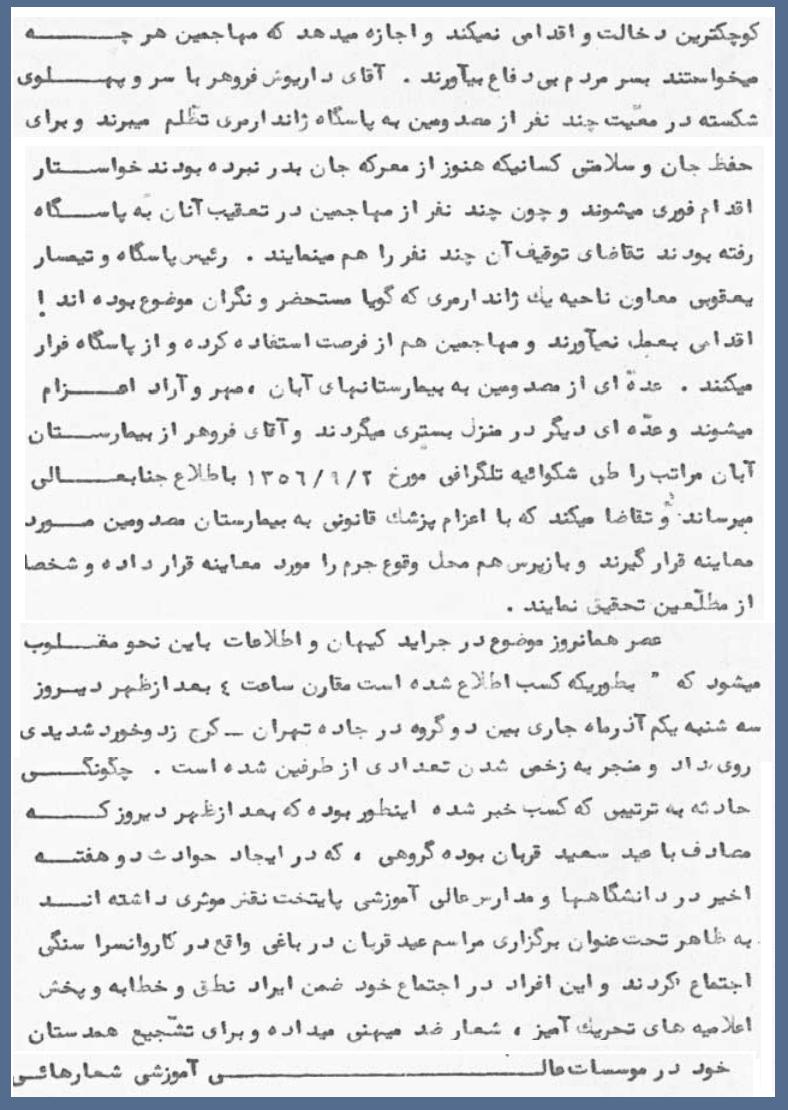 کوچکترین دخالت و اقدامی نمیکند و اجازه میدهد که مهاجمین هر چه
میخواستند بسر مردم بی دفاع بیآورند . آقای داریوش فروهر با سر و پهلوی
شکسته در معیّت چند نفر از مصدومین به پاسگاه ژاندارمری تظّلم میبرند و برای
حفظ جان و سلامتی کسانیکه هنوز از معرکه جان بدر نبرده بودند خواستار
اقدام فوری میشوند و چون چند نفر از مهاجمین در تعقیب آنان به پاسگاه
رفته بودند تقاضای توقیف آن چند نفر را هم مینمایند . رئیس پاسگاه و تیمسار
یعقوبی معاون ناحیه یك ژاندارمری که گویا مستحضر و نگران موضوع بوده اند !
اقدامی بعمل نمیآورند و مهاجمین هم از فرصت استفاده کرده و از پاسگاه فرار
میکنند . عدّه ای از مصدومین به بیمارستانهای آبان ، مهر و آراد اعزام
میشوند و عدّه ای دیگر در منزل بستری میگردند و آقای فروهر از بیمارستان
آبان مراتب را طی شکوائیه تلگرافی مورخ ۱۳۵۶/۹/۲ باطلاع جنابعالی
میرساند و تقاضا میکند که با اعزام پزشك قانونی به بیمارستان مصدومین مورد
معاینه قرار گیرند و بازپرس هم محل وقوع جرم را مورد معاینه قرار داده و شخصا
از مطلّعین تحقیق نمایند .
عصر همانروز موضوع در جراید کیهان و اطلاعات باین نحو مقلوب
میشود که " بطوریکه کسب اطلاع شده است مقارن ساعت ٤ بعد ازظهر دیروز
سه شنبه یکم آذرماه جاری بین دو گروه در جاده تهران ــ کرج زد وخورد شدیدی
روی داد و منجر به زخمی شدن تعدادی از طرفین شده است . چگونگی
حادثه به ترتیبی که کسب خبر شده اینطور بوده که بعد ازظهر دیروز که
مصادف با عید سعید قربان بوده گروهی ، که در ایجاد حوادث دو هفته
اخیر در دانشگاهها و مدارس عالی آموزشی پایتخت نقش موثری داشته اند
به ظاهر تحت عنوان برگزاری مراسم عید قربان در باغی واقع در کاروانسرا سنگی
اجتماع کردند و این افراد در اجتماع خود ضمن ایراد نطق و خطابه و پخش
اعلامیه های تحریك آمیز ، شعار ضد میهنی میداده و برای تشّجیع همدستان
خود در موسسات عالی آموزشی شعارهائی